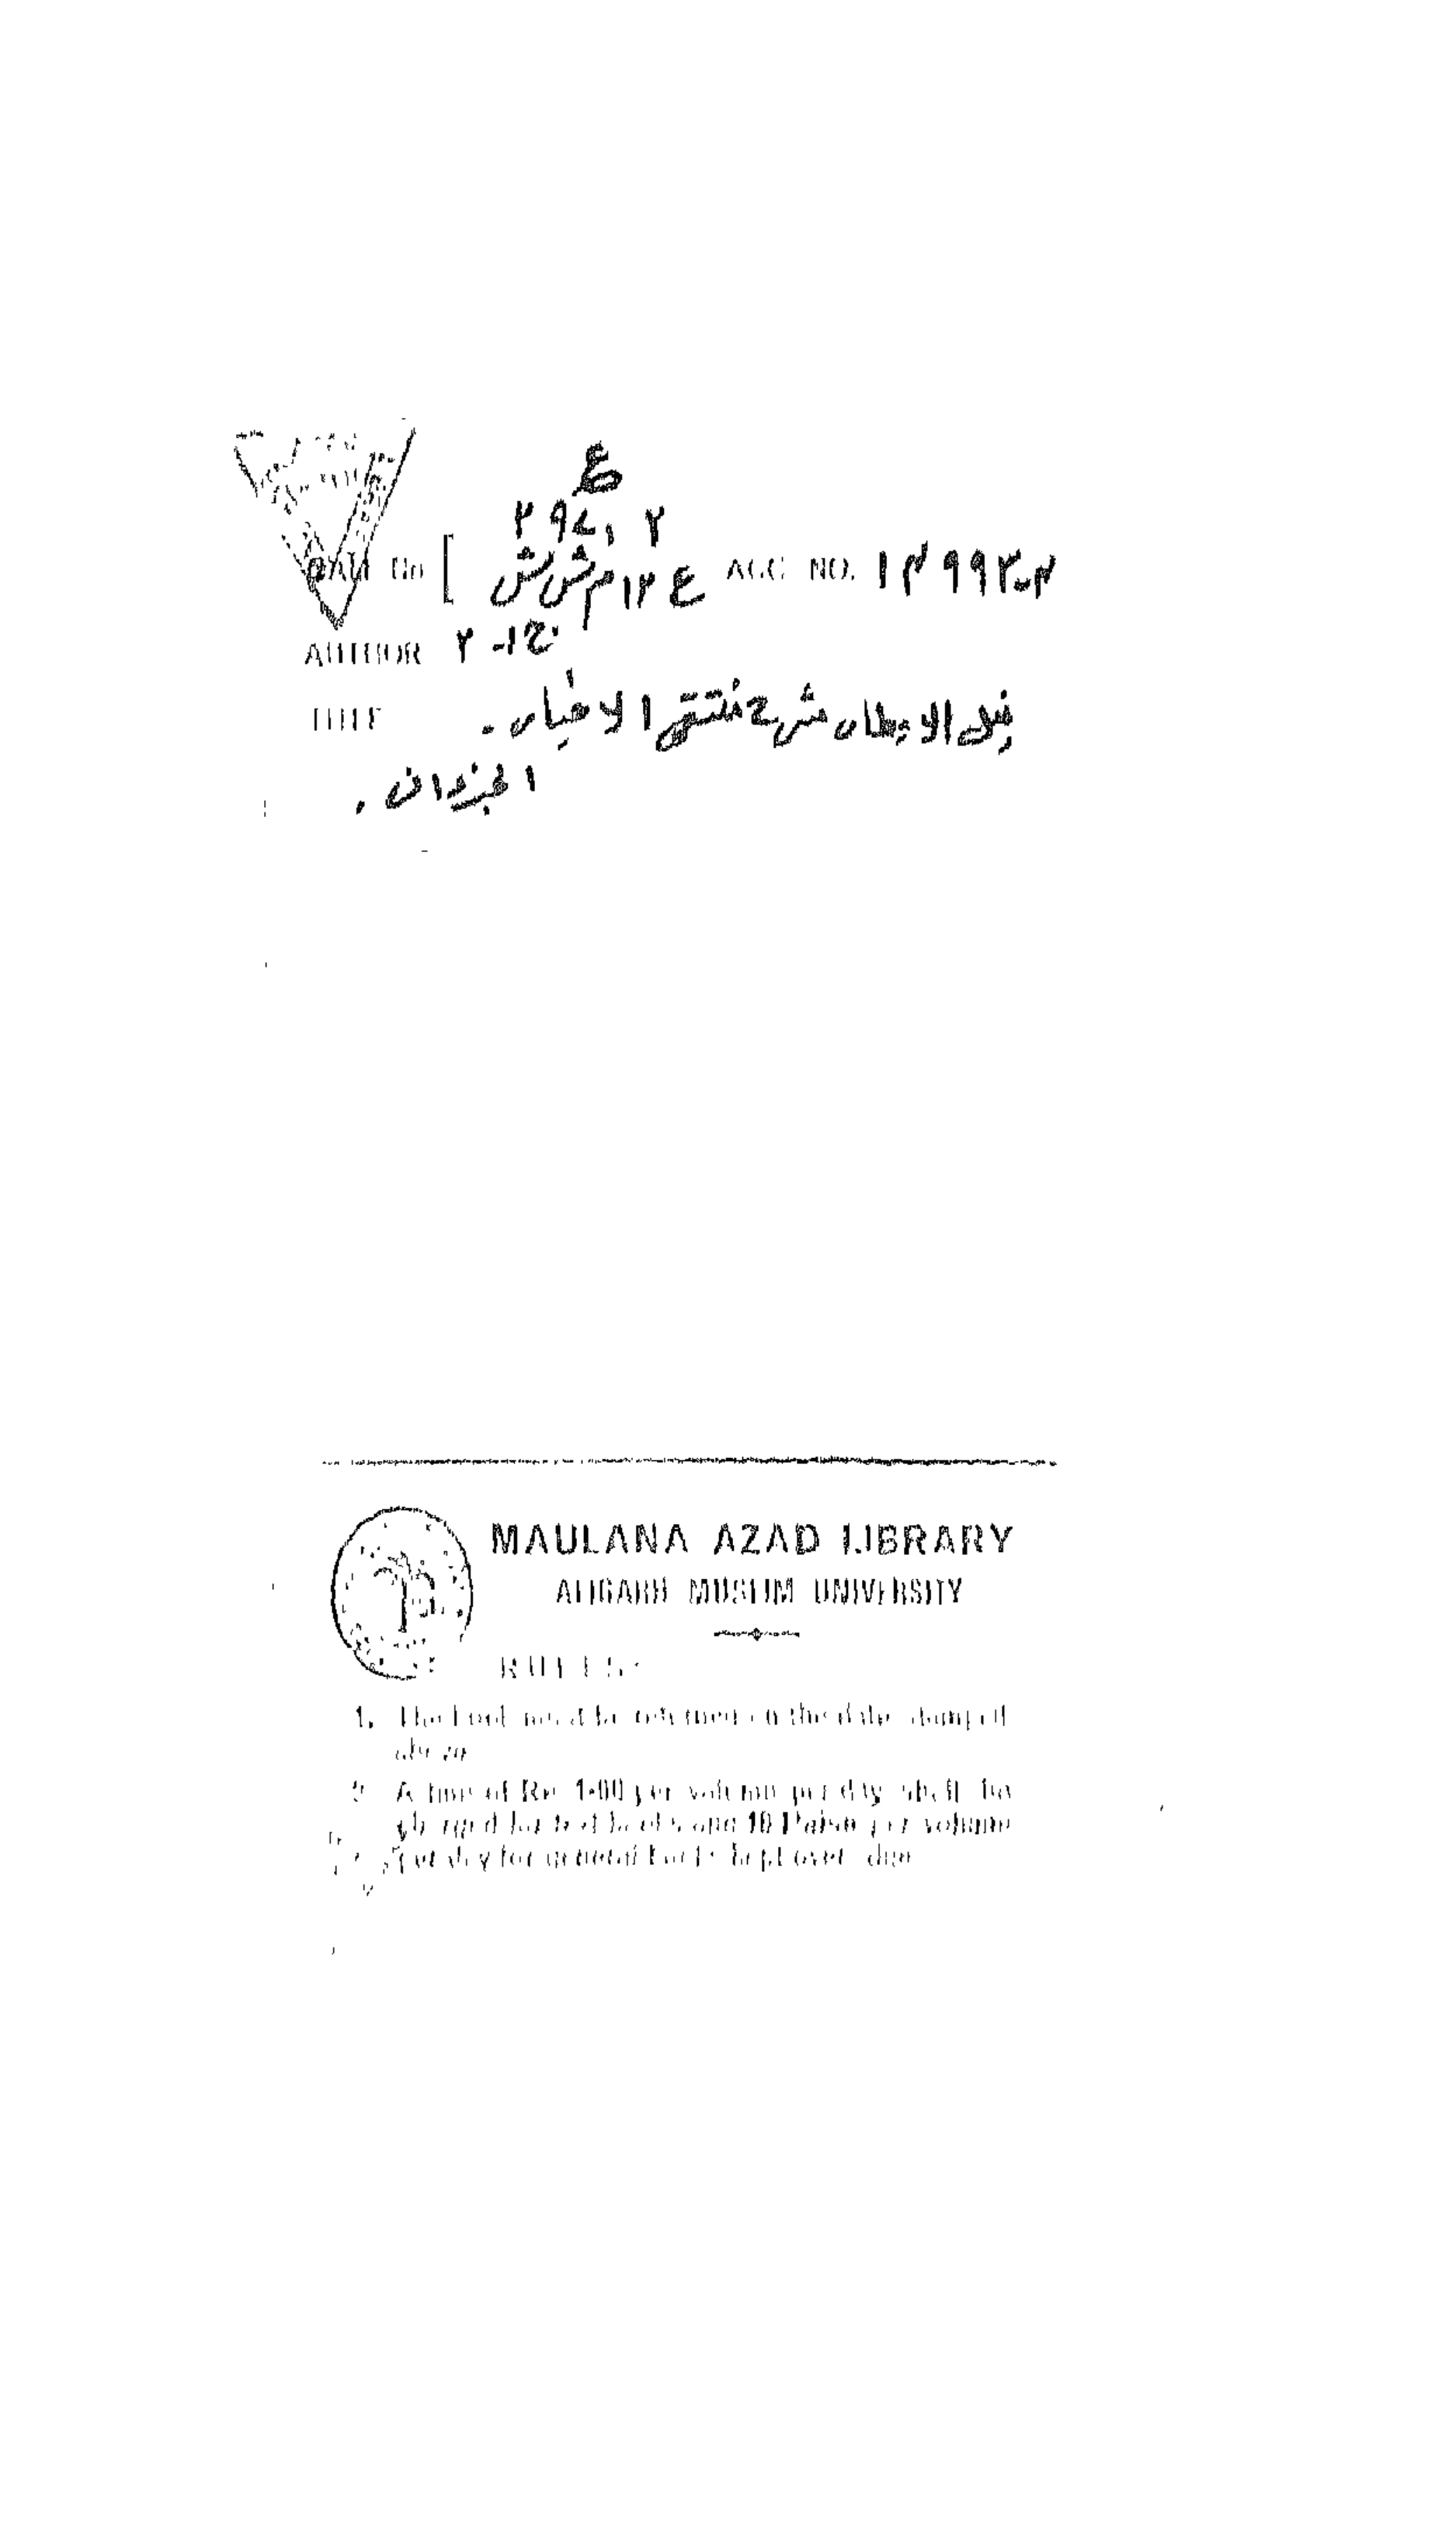 ع
۲۹۷٫۲
CALL No [ ع ۱۳ م ش ش ACC. NO. ۱۳۹۹۳-۳
AUTHOR ج ۱-۲
TITLE نیل الاوطار شرح منتقی الاخبار۔
الجزءان .
MAULANA AZAD LIBRARY
ALIGARH MUSLIM UNIVERSITY
RULES:
1. The book must be returned on the date stamped
above
2. A fine of Re. 1-00 per volume per day shall be
charged for text books and 10 Paise per volume
per day for general books kept over due